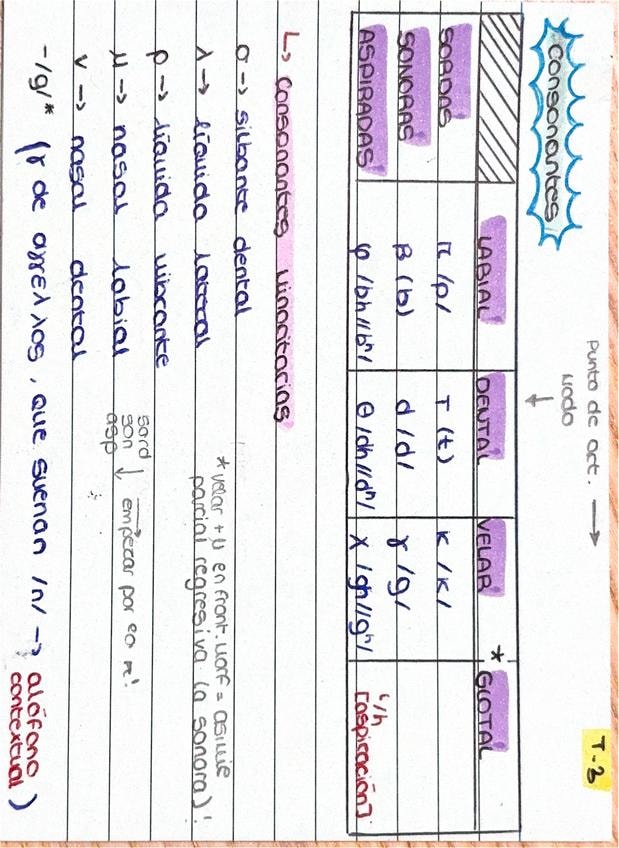 T-3
Consonantes
Punto de art. →
Modo ↓
LABIAL DENTAL VELAR * GLOTAL
SORDAS π /p/ τ (t) κ /k/
SONORAS β (b) d /d/ γ /g/
ASPIRADAS φ /bh//bʰ/ θ /dh//dʰ/ χ /gh//gʰ/ ʽ/h
[aspiración]
↳ Consonantes minoritarias
σ → silbante dental
λ → líquida lateral
ρ → líquida vibrante
μ → nasal labial
ν → nasal dental
* velar + μ en front. morf = asimile
parcial regresiva (a sonora)!
sord
son ↓ → empezar por eo π!
asp
- /g/* (γ de αγγελλος, que suenan /n/ → alófono
contextual)